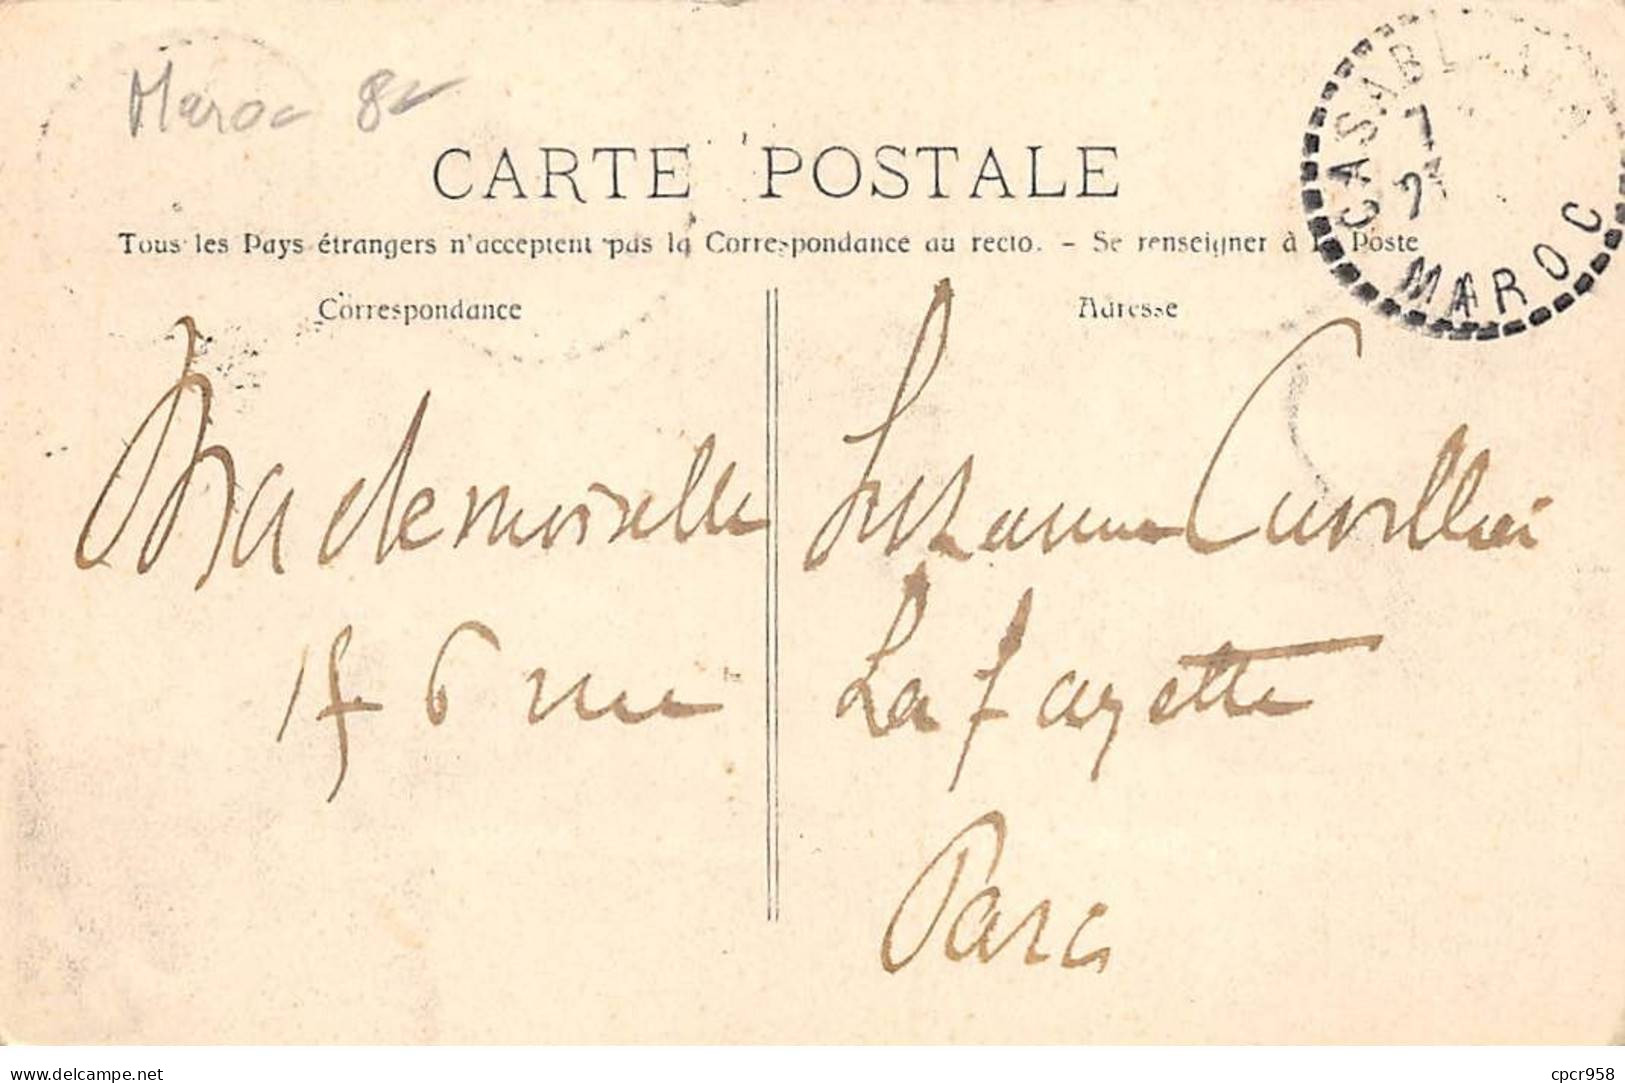 Maroc 8
CARTE POSTALE
Tous les Pays étrangers n'acceptent pas la Correspondance au recto. - Se renseigner à la Poste
CASABLANCA
7
MAROC
Correspondance
Adresse
Mademoiselle Suzanne Cuvillier
176 rue Lafayette
Paris
www.delcampe.net
cpcr958